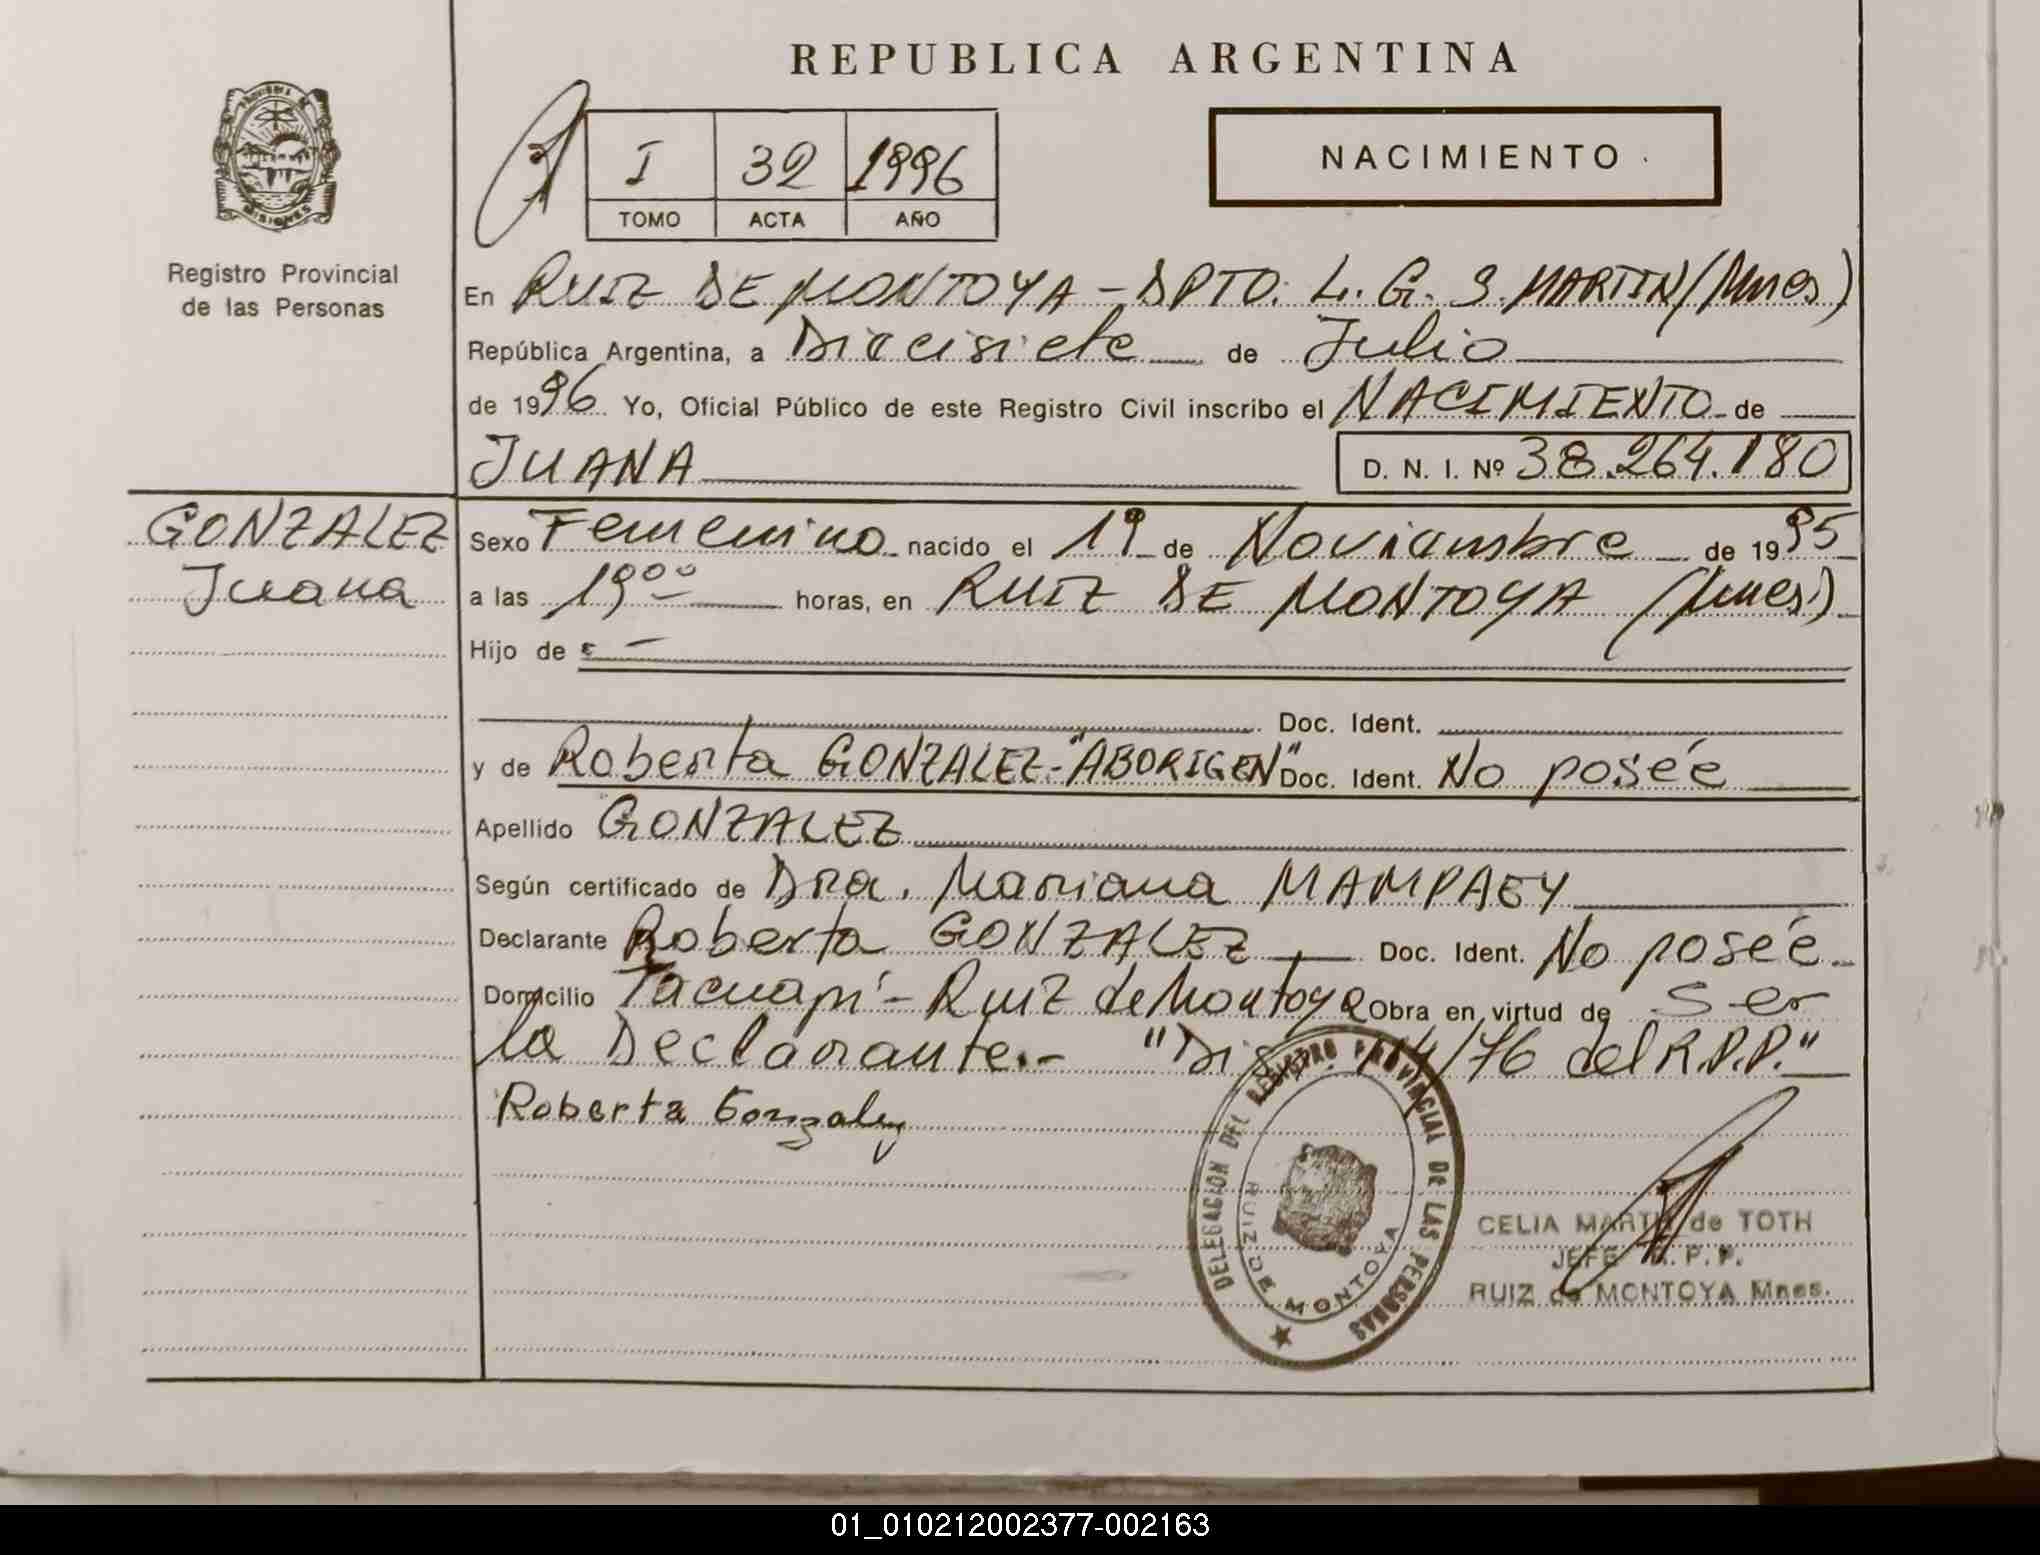 REPUBLICA ARGENTINA
PROVINCIA DE
MISIONES
Registro Provincial
de las Personas
I 32 1996
TOMO ACTA AÑO
NACIMIENTO
En RUIZ DE MONTOYA - DPTO. L. G. S. MARTIN (Mnes)
República Argentina, a Diecisiete de Julio
de 1996 Yo, Oficial Público de este Registro Civil inscribo el NACIMIENTO de
JUANA D. N. I. Nº 38.264.180
GONZALEZ
Juana
Sexo Femenino nacido el 19 de Noviembre de 1995
a las 19⁰⁰ horas, en RUIZ DE MONTOYA (Mnes)
Hijo de
Doc. Ident.
y de Roberta GONZALEZ - "ABORIGEN" Doc. Ident. No posée
Apellido GONZALEZ
Según certificado de Dra. Mariana MAMPAEY
Declarante Roberta GONZALEZ Doc. Ident. No posée
Domicilio Tacuapí - Ruiz de Montoya Obra en virtud de ser
la Declarante.- "Dis /76 del R.P.P."
Roberta Gonzalez
DELEGACION DEL REGISTRO PROVINCIAL DE LAS PERSONAS
RUIZ DE MONTOYA
CELIA de TOTH
JEFE R.P.P.
RUIZ de MONTOYA Mnes.
01_010212002377-002163